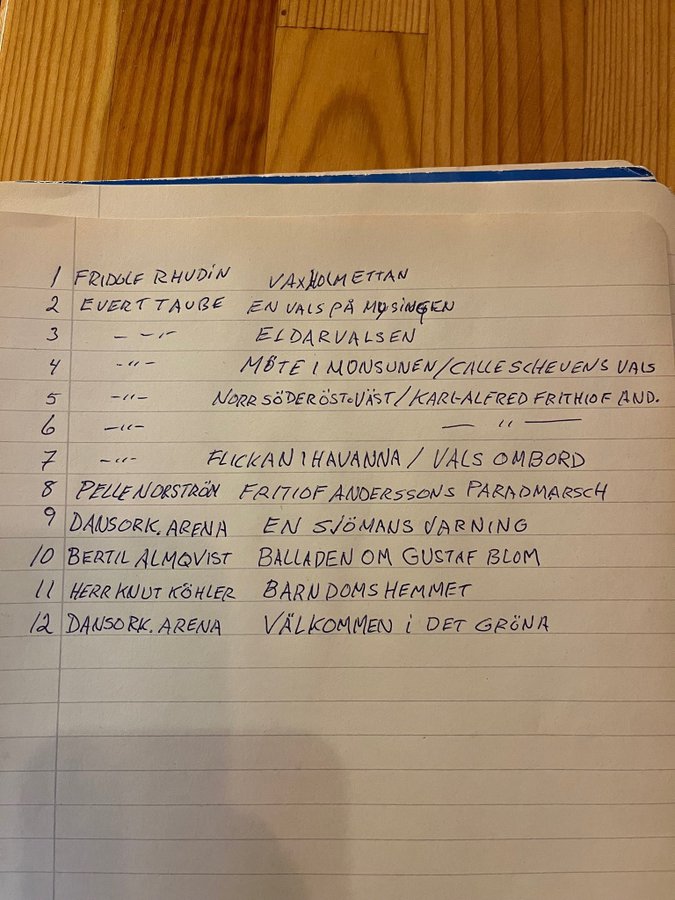 1 FRIDOLF RHUDIN VAXHOLMETTAN
2 EVERT TAUBE EN VALS PÅ MYSINGEN
3 -"- ELDARVALSEN
4 -"- MÖTE I MONSUNEN/CALLE SCHEVENS VALS
5 -"- NORR SÖDER ÖST O VÄST/KARL-ALFRED FRITHIOF AND.
6 -"- — " —
7 -"- FLICKAN I HAVANNA/VALS OMBORD
8 PELLE NORSTRÖM FRITIOF ANDERSSONS PARADMARSCH
9 DANSORK. ARENA EN SJÖMANS VARNING
10 BERTIL ALMQVIST BALLADEN OM GUSTAF BLOM
11 HERR KNUT KÖHLER BARNDOMSHEMMET
12 DANSORK. ARENA VÄLKOMMEN i DET GRÖNA